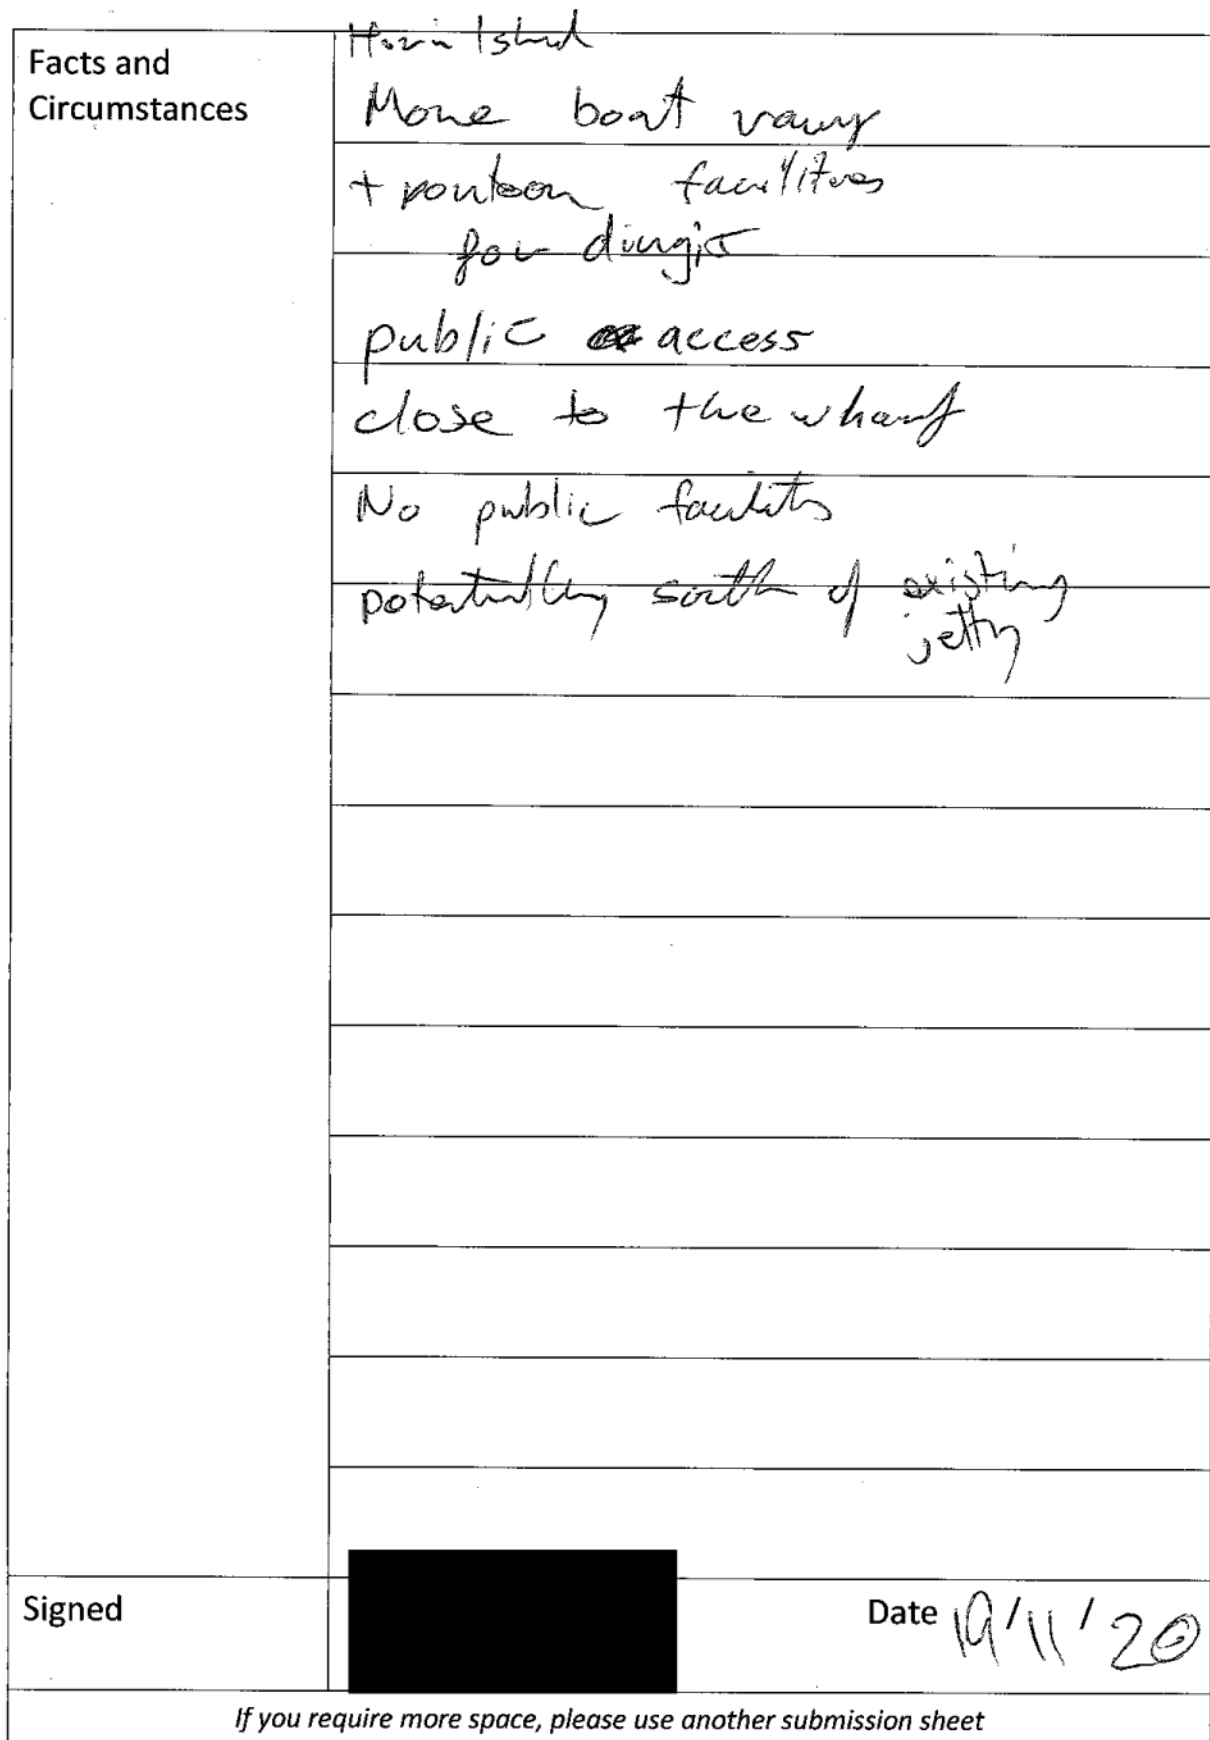 Facts and
Circumstances
Horn Island
More boat ramp
+ pontoon facilities
for dingis
public access
close to the wharf
No public facilits
potentially south of existing
jetty
Signed
Date 19/11/20
If you require more space, please use another submission sheet